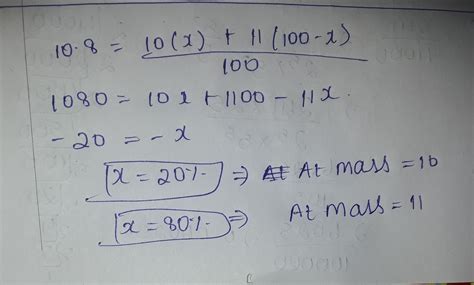 10.8 = 10(x) + 11(100-x) / 100
1080 = 10x + 1100 - 11x.
-20 = -x
x = 20%. ⇒ At mass = 10
x = 80%. ⇒ At mass = 11